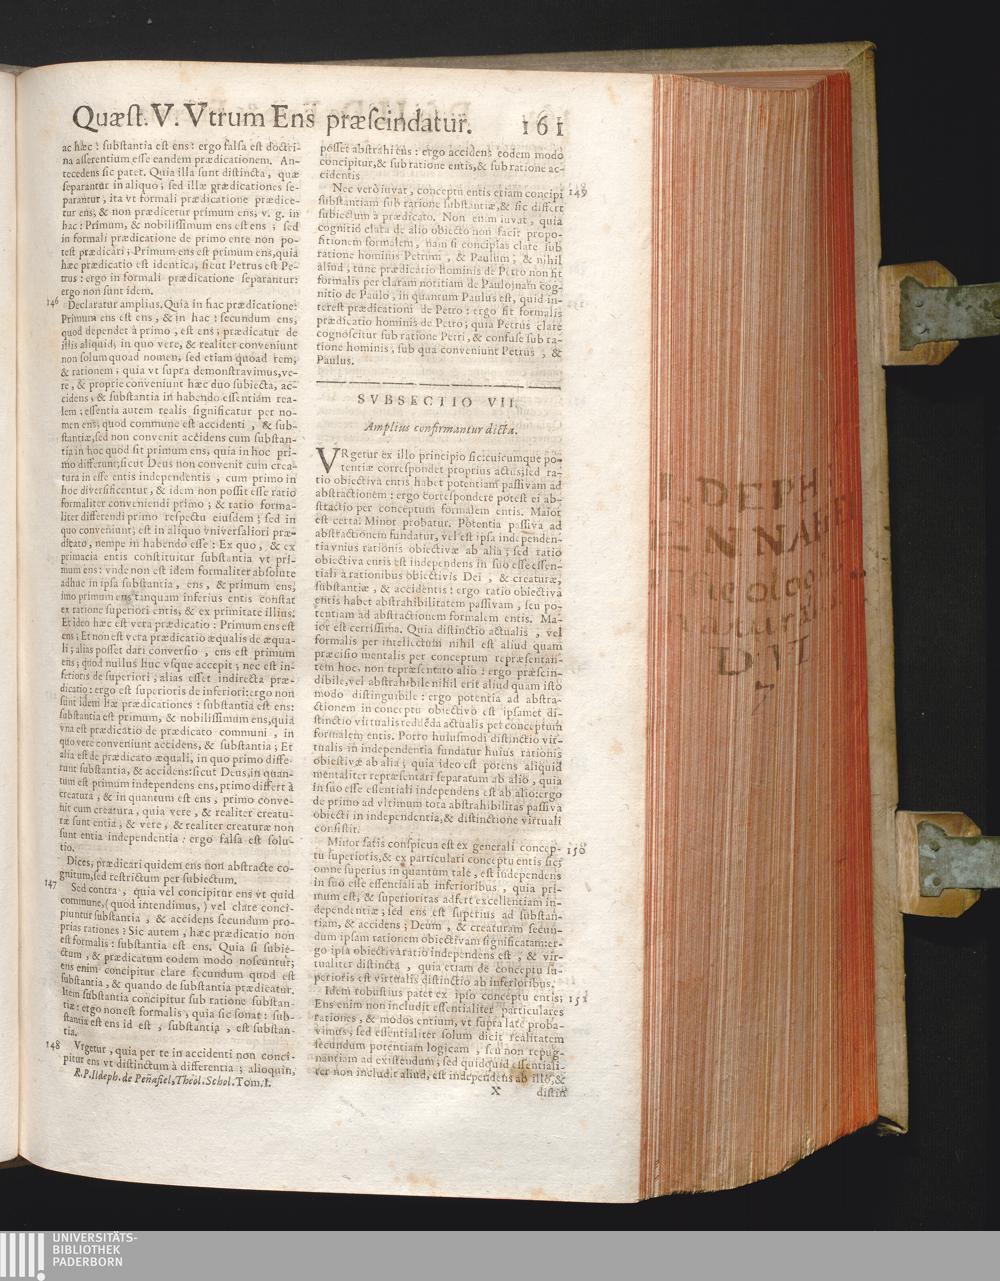 Quæſt. V. Vtrum Ens præſcindatur. 161
ac hæc: ſubſtantia eſt ens: ergo falſa eſt doctri-
na aſſerentium eſſe eandem prædicationem. An-
tecedens ſic patet. Quia illa ſunt diſtincta, quæ
ſeparantur in aliquo; ſed illæ prædicationes ſe-
parantur, ita vt formali prædicatione prædice-
tur ens, & non prædicetur primum ens, v. g. in
hac: Primum, & nobiliſſimum ens eſt ens; ſed
in formali prædicatione de primo ente non po-
teſt prædicari; Primum ens eſt primum ens, quia
hæc prædicatio eſt identica, ſicut Petrus eſt Pe-
trus: ergo in formali prædicatione ſeparantur:
ergo non ſunt idem.
146 Declaratur amplius. Quia in hac prædicatione:
Primum ens eſt ens, & in hac: ſecundum ens,
quod dependet à primo, eſt ens; prædicatur de
illis aliquid, in quo vere, & realiter conveniunt
non ſolum quoad nomen, ſed etiam quoad rem,
& rationem; quia vt ſupra demonſtravimus, ve-
re, & proprie conveniunt hæc duo ſubiecta, ac-
cidens, & ſubſtantia in habendo eſſentiam rea-
lem; eſſentia autem realis ſignificatur per no-
men ens, quod commune eſt accidenti, & ſub-
ſtantiæ, ſed non convenit accidens cum ſubſtan-
tia in hoc quod ſit primum ens, quia in hoc pri-
mo differunt; ſicut Deus non convenit cum crea-
tura in eſſe entis independentis, cum primo in
hoc diverſificentur, & idem non poſſit eſſe ratio
formaliter conveniendi primo; & ratio forma-
liter differendi primo reſpectu eiuſdem; ſed in
quo conveniunt, eſt in aliquo vniverſaliori præ-
dicato, nempe in habendo eſſe: Ex quo, & ex
primacia entis conſtituitur ſubſtantia vt pri-
mum ens: vnde non eſt idem formaliter abſolute
adhuc in ipſa ſubſtantia, ens, & primum ens,
imo primum ens tanquam inferius entis conſtat
ex ratione ſuperiori entis, & ex primitate illius.
Et ideo hæc eſt vera prædicatio: Primum ens eſt
ens; Et non eſt vera prædicatio æqualis de æqua-
li; alias poſſet dari converſio, ens eſt primum
ens; quod nullus huc vſque accepit; nec eſt in-
ferioris de ſuperiori; alias eſſet indirecta præ-
dicatio: ergo eſt ſuperioris de inferiori: ergo non
ſunt idem hæ prædicationes: ſubſtantia eſt ens:
ſubſtantia eſt primum, & nobiliſſimum ens, quia
vna eſt prædicatio de prædicato communi, in
quo vere conveniunt accidens, & ſubſtantia; Et
alia eſt de prædicato æquali, in quo primo diffe-
runt ſubſtantia, & accidens: ſicut Deus, in quan-
tum eſt primum independens ens, primo differt à
creatura, & in quantum eſt ens, primo conve-
nit cum creatura, quia vere, & realiter creatu-
ræ ſunt entia, & vere, & realiter creaturæ non
ſunt entia independentia: ergo falſa eſt ſolu-
tio.
Dices, prædicari quidem ens non abſtracte co-
gnitum, ſed reſtrictum per ſubiectum.
147 Sed contra, quia vel concipitur ens vt quid
commune, (quod intendimus,) vel clare conci-
piuntur ſubſtantia, & accidens ſecundum pro-
prias rationes? Sic autem, hæc prædicatio non
eſt formalis: ſubſtantia eſt ens. Quia ſi ſubie-
ctum, & prædicatum eodem modo noſcuntur;
ens enim concipitur clare ſecundum quod eſt
ſubſtantia, & quando de ſubſtantia prædicatur.
Item ſubſtantia concipitur ſub ratione ſubſtan-
tiæ: ergo non eſt formalis, quia ſic ſonat: ſub-
ſtantia eſt ens id eſt, ſubſtantia, eſt ſubſtan-
tia.
148 Vrgetur, quia per te in accidenti non conci-
pitur ens vt diſtinctum à differentia; alioquin,
R. P. Ildeph. de Peñafiel, Theol. Schol. Tom. I.
poſſet abſtrahi ens: ergo accidens eodem modo
concipitur, & ſub ratione entis, & ſub ratione ac-
cidentis
Nec verò iuvat, conceptū entis etiam concipi 149
ſubſtantiam ſub ratione ſubſtantiæ, & ſic differt
ſubiectum à prædicato. Non enim iuvat, quia
cognitio clara de alio obiecto non facit propo-
ſitionem formalem, nam ſi concipias clare ſub
ratione hominis Petrum, & Paulum, & nihil
aliud; tunc prædicatio hominis de Petro non fit
formalis per claram notitiam de Paulo; nam cog-
nitio de Paulo, in quantum Paulus eſt, quid in-
tereſt prædicationi de Petro: ergo ſit formalis
prædicatio hominis de Petro; quia Petrus clare
cognoſcitur ſub ratione Petri, & confuſe ſub ra-
tione hominis, ſub qua conveniunt Petrus, &
Paulus.
SVBSECTIO VII.
Amplius confirmantur dicta.
VRgetur ex illo principio ſic: cuicumque po-
tentiæ correſpondet proprius actus; ſed ra-
tio obiectiva entis habet potentiam paſſivam ad
abſtractionem: ergo correſpondere poteſt ei ab-
ſtractio per conceptum formalem entis. Maior
eſt certa. Minor probatur. Potentia paſſiva ad
abſtractionem fundatur, vel eſt ipſa independen-
tia vnius rationis obiectivæ ab alia; ſed ratio
obiectiva entis eſt independens in ſuo eſſe eſſen-
tiali a rationibus obiectivis Dei, & creaturæ,
ſubſtantiæ, & accidentis: ergo ratio obiectiva
entis habet abſtrahibilitatem paſſivam, ſeu po-
tentiam ad abſtractionem formalem entis. Ma-
ior eſt certiſſima. Quia diſtinctio actualis, vel
formalis per intellectum nihil eſt aliud quam
præciſio mentalis per conceptum repræſentan-
tem hoc, non repræſentato alio: ergo præſcin-
dibile, vel abſtrahibile nihil erit aliud quam iſto
modo diſtinguibile: ergo potentia ad abſtra-
ctionem in conceptu obiectivo eſt ipſamet di-
ſtinctio virtualis reddēda actualis per conceptum
formalem entis. Porro huiuſmodi diſtinctio vir-
tualis in independentia fundatur huius rationis
obiectivæ ab alia; quia ideo eſt potens aliquid
mentaliter repræſentari ſeparatum ab alio, quia
in ſuo eſſe eſſentiali independens eſt ab alio: ergo
de primo ad vltimum tota abſtrahibilitas paſſiva
obiecti in independentia, & diſtinctione virtuali
conſiſtit.
Minor ſatis conſpicua eſt ex generali concep- 150
tu ſuperioris, & ex particulari conceptu entis ſic;
omne ſuperius in quantum tale, eſt independens
in ſuo eſſe eſſentiali ab inferioribus, quia pri-
mum eſt, & ſuperioritas adfert excellentiam in-
dependentiæ; ſed ens eſt ſuperius ad ſubſtan-
tiam, & accidens; Deum, & creaturam ſecun-
dum ipſam rationem obiectivam ſignificatam: er-
go ipſa obiectiva ratio independens eſt, & vir-
tualiter diſtincta, quia etiam de conceptu ſu-
perioris eſt virtualis diſtinctio ab inferioribus.
Idem robuſtius patet ex ipſo conceptu entis; 151
Ens enim non includit eſſentialiter particulares
rationes, & modos entium, vt ſupra late proba-
vimus, ſed eſſentialiter ſolum dicit realitatem
ſecundum potentiam logicam, ſeu non repug-
nantiam ad exiſtendum; ſed quidquid eſſentiali-
ter non includit aliud, eſt independens ab illo, &
X diſtin
DEPH
ENNA
D. VI
7
UNIVERSITÄTS-
BIBLIOTHEK
PADERBORN